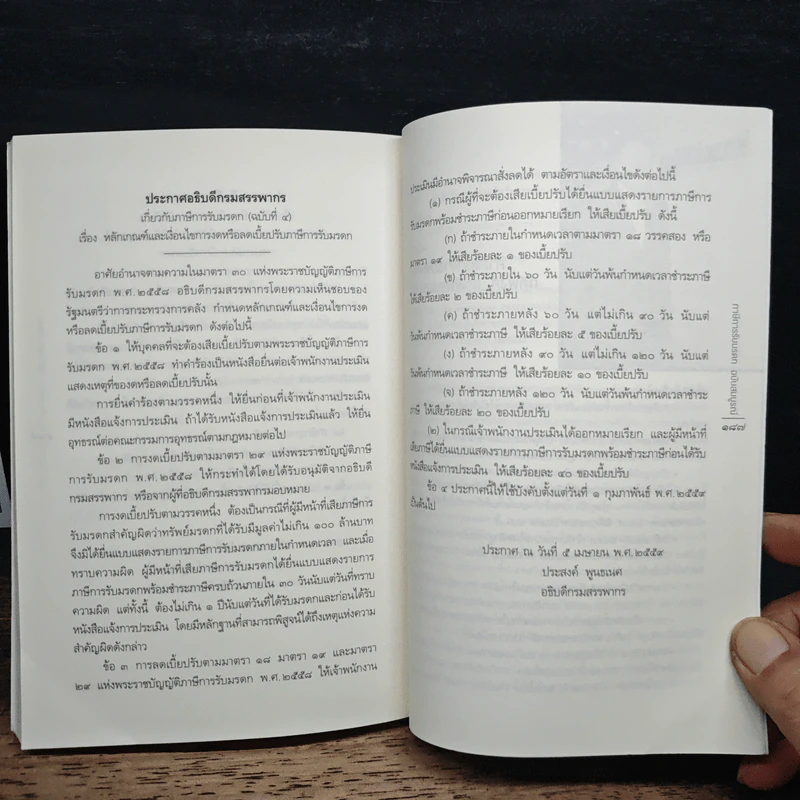 ประกาศอธิบดีกรมสรรพากร
เกี่ยวกับภาษีการรับมรดก (ฉบับที่ ๔)
เรื่อง หลักเกณฑ์และเงื่อนไขการงดหรือลดเบี้ยปรับภาษีการรับมรดก
อาศัยอำนาจตามความในมาตรา ๓๐ แห่งพระราชบัญญัติภาษีการ
รับมรดก พ.ศ.๒๕๕๘ อธิบดีกรมสรรพากรโดยความเห็นชอบของ
รัฐมนตรีว่าการกระทรวงการคลัง กำหนดหลักเกณฑ์และเงื่อนไขการงด
หรือลดเบี้ยปรับภาษีการรับมรดก ดังต่อไปนี้
ข้อ ๑ ให้บุคคลที่จะต้องเสียเบี้ยปรับตามพระราชบัญญัติภาษีการ
รับมรดก พ.ศ.๒๕๕๘ ทำคำร้องเป็นหนังสือยื่นต่อเจ้าพนักงานประเมิน
แสดงเหตุที่ของดหรือลดเบี้ยปรับนั้น
การยื่นคำร้องตามวรรคหนึ่ง ให้ยื่นก่อนที่เจ้าพนักงานประเมิน
มีหนังสือแจ้งการประเมิน ถ้าได้รับหนังสือแจ้งการประเมินแล้ว ให้ยื่น
อุทธรณ์ต่อคณะกรรมการอุทธรณ์ตามกฎหมายต่อไป
ข้อ ๒ การงดเบี้ยปรับตามมาตรา ๒๙ แห่งพระราชบัญญัติภาษี
การรับมรดก พ.ศ.๒๕๕๘ ให้กระทำได้โดยได้รับอนุมัติจากอธิบดี
กรมสรรพากร หรือจากผู้ที่อธิบดีกรมสรรพากรมอบหมาย
การงดเบี้ยปรับตามวรรคหนึ่ง ต้องเป็นกรณีที่ผู้มีหน้าที่เสียภาษีการ
รับมรดกสำคัญผิดว่าทรัพย์มรดกที่ได้รับมีมูลค่าไม่เกิน ๑๐๐ ล้านบาท
จึงมิได้ยื่นแบบแสดงรายการภาษีการรับมรดกภายในกำหนดเวลา และเมื่อ
ทราบความผิด ผู้มีหน้าที่เสียภาษีการรับมรดกได้ยื่นแบบแสดงรายการ
ภาษีการรับมรดกพร้อมชำระภาษีครบถ้วนภายใน ๓๐ วันนับแต่วันที่ทราบ
ความผิด แต่ทั้งนี้ ต้องไม่เกิน ๑ ปีนับแต่วันที่ได้รับมรดกและก่อนได้รับ
หนังสือแจ้งการประเมิน โดยมีหลักฐานที่สามารถพิสูจน์ได้ถึงเหตุแห่งความ
สำคัญผิดดังกล่าว
ข้อ ๓ การลดเบี้ยปรับตามมาตรา ๑๘ มาตรา ๑๙ และมาตรา
๒๙ แห่งพระราชบัญญัติภาษีการรับมรดก พ.ศ.๒๕๕๘ ให้เจ้าพนักงาน
ประเมินมีอำนาจพิจารณาสั่งลดได้ ตามอัตราและเงื่อนไขดังต่อไปนี้
(๑) กรณีผู้ที่จะต้องเสียเบี้ยปรับได้ยื่นแบบแสดงรายการภาษีการ
รับมรดกพร้อมชำระภาษีก่อนออกหมายเรียก ให้เสียเบี้ยปรับ ดังนี้
(ก) ถ้าชำระภายในกำหนดเวลาตามมาตรา ๑๘ วรรคสอง หรือ
มาตรา ๑๙ ให้เสียร้อยละ ๑ ของเบี้ยปรับ
(ข) ถ้าชำระภายใน ๖๐ วัน นับแต่วันพ้นกำหนดเวลาชำระภาษี
ให้เสียร้อยละ ๒ ของเบี้ยปรับ
(ค) ถ้าชำระภายหลัง ๖๐ วัน แต่ไม่เกิน ๙๐ วัน นับแต่
วันพ้นกำหนดเวลาชำระภาษี ให้เสียร้อยละ ๕ ของเบี้ยปรับ
(ง) ถ้าชำระภายหลัง ๙๐ วัน แต่ไม่เกิน ๑๒๐ วัน นับแต่
วันพ้นกำหนดเวลาชำระภาษี ให้เสียร้อยละ ๑๐ ของเบี้ยปรับ
(จ) ถ้าชำระภายหลัง ๑๒๐ วัน นับแต่วันพ้นกำหนดเวลาชำระ
ภาษี ให้เสียร้อยละ ๒๐ ของเบี้ยปรับ
(๒) ในกรณีเจ้าพนักงานประเมินได้ออกหมายเรียก และผู้มีหน้าที่
เสียภาษีได้ยื่นแบบแสดงรายการภาษีการรับมรดกพร้อมชำระภาษีก่อนได้รับ
หนังสือแจ้งการประเมิน ให้เสียร้อยละ ๔๐ ของเบี้ยปรับ
ข้อ ๔ ประกาศนี้ให้ใช้บังคับตั้งแต่วันที่ ๑ กุมภาพันธ์ พ.ศ.๒๕๕๙
เป็นต้นไป
ประกาศ ณ วันที่ ๕ เมษายน พ.ศ.๒๕๕๙
ประสงค์ พูนธเนศ
อธิบดีกรมสรรพากร
ภาษีการรับมรดก ฉบับสมบูรณ์
๑๘๗